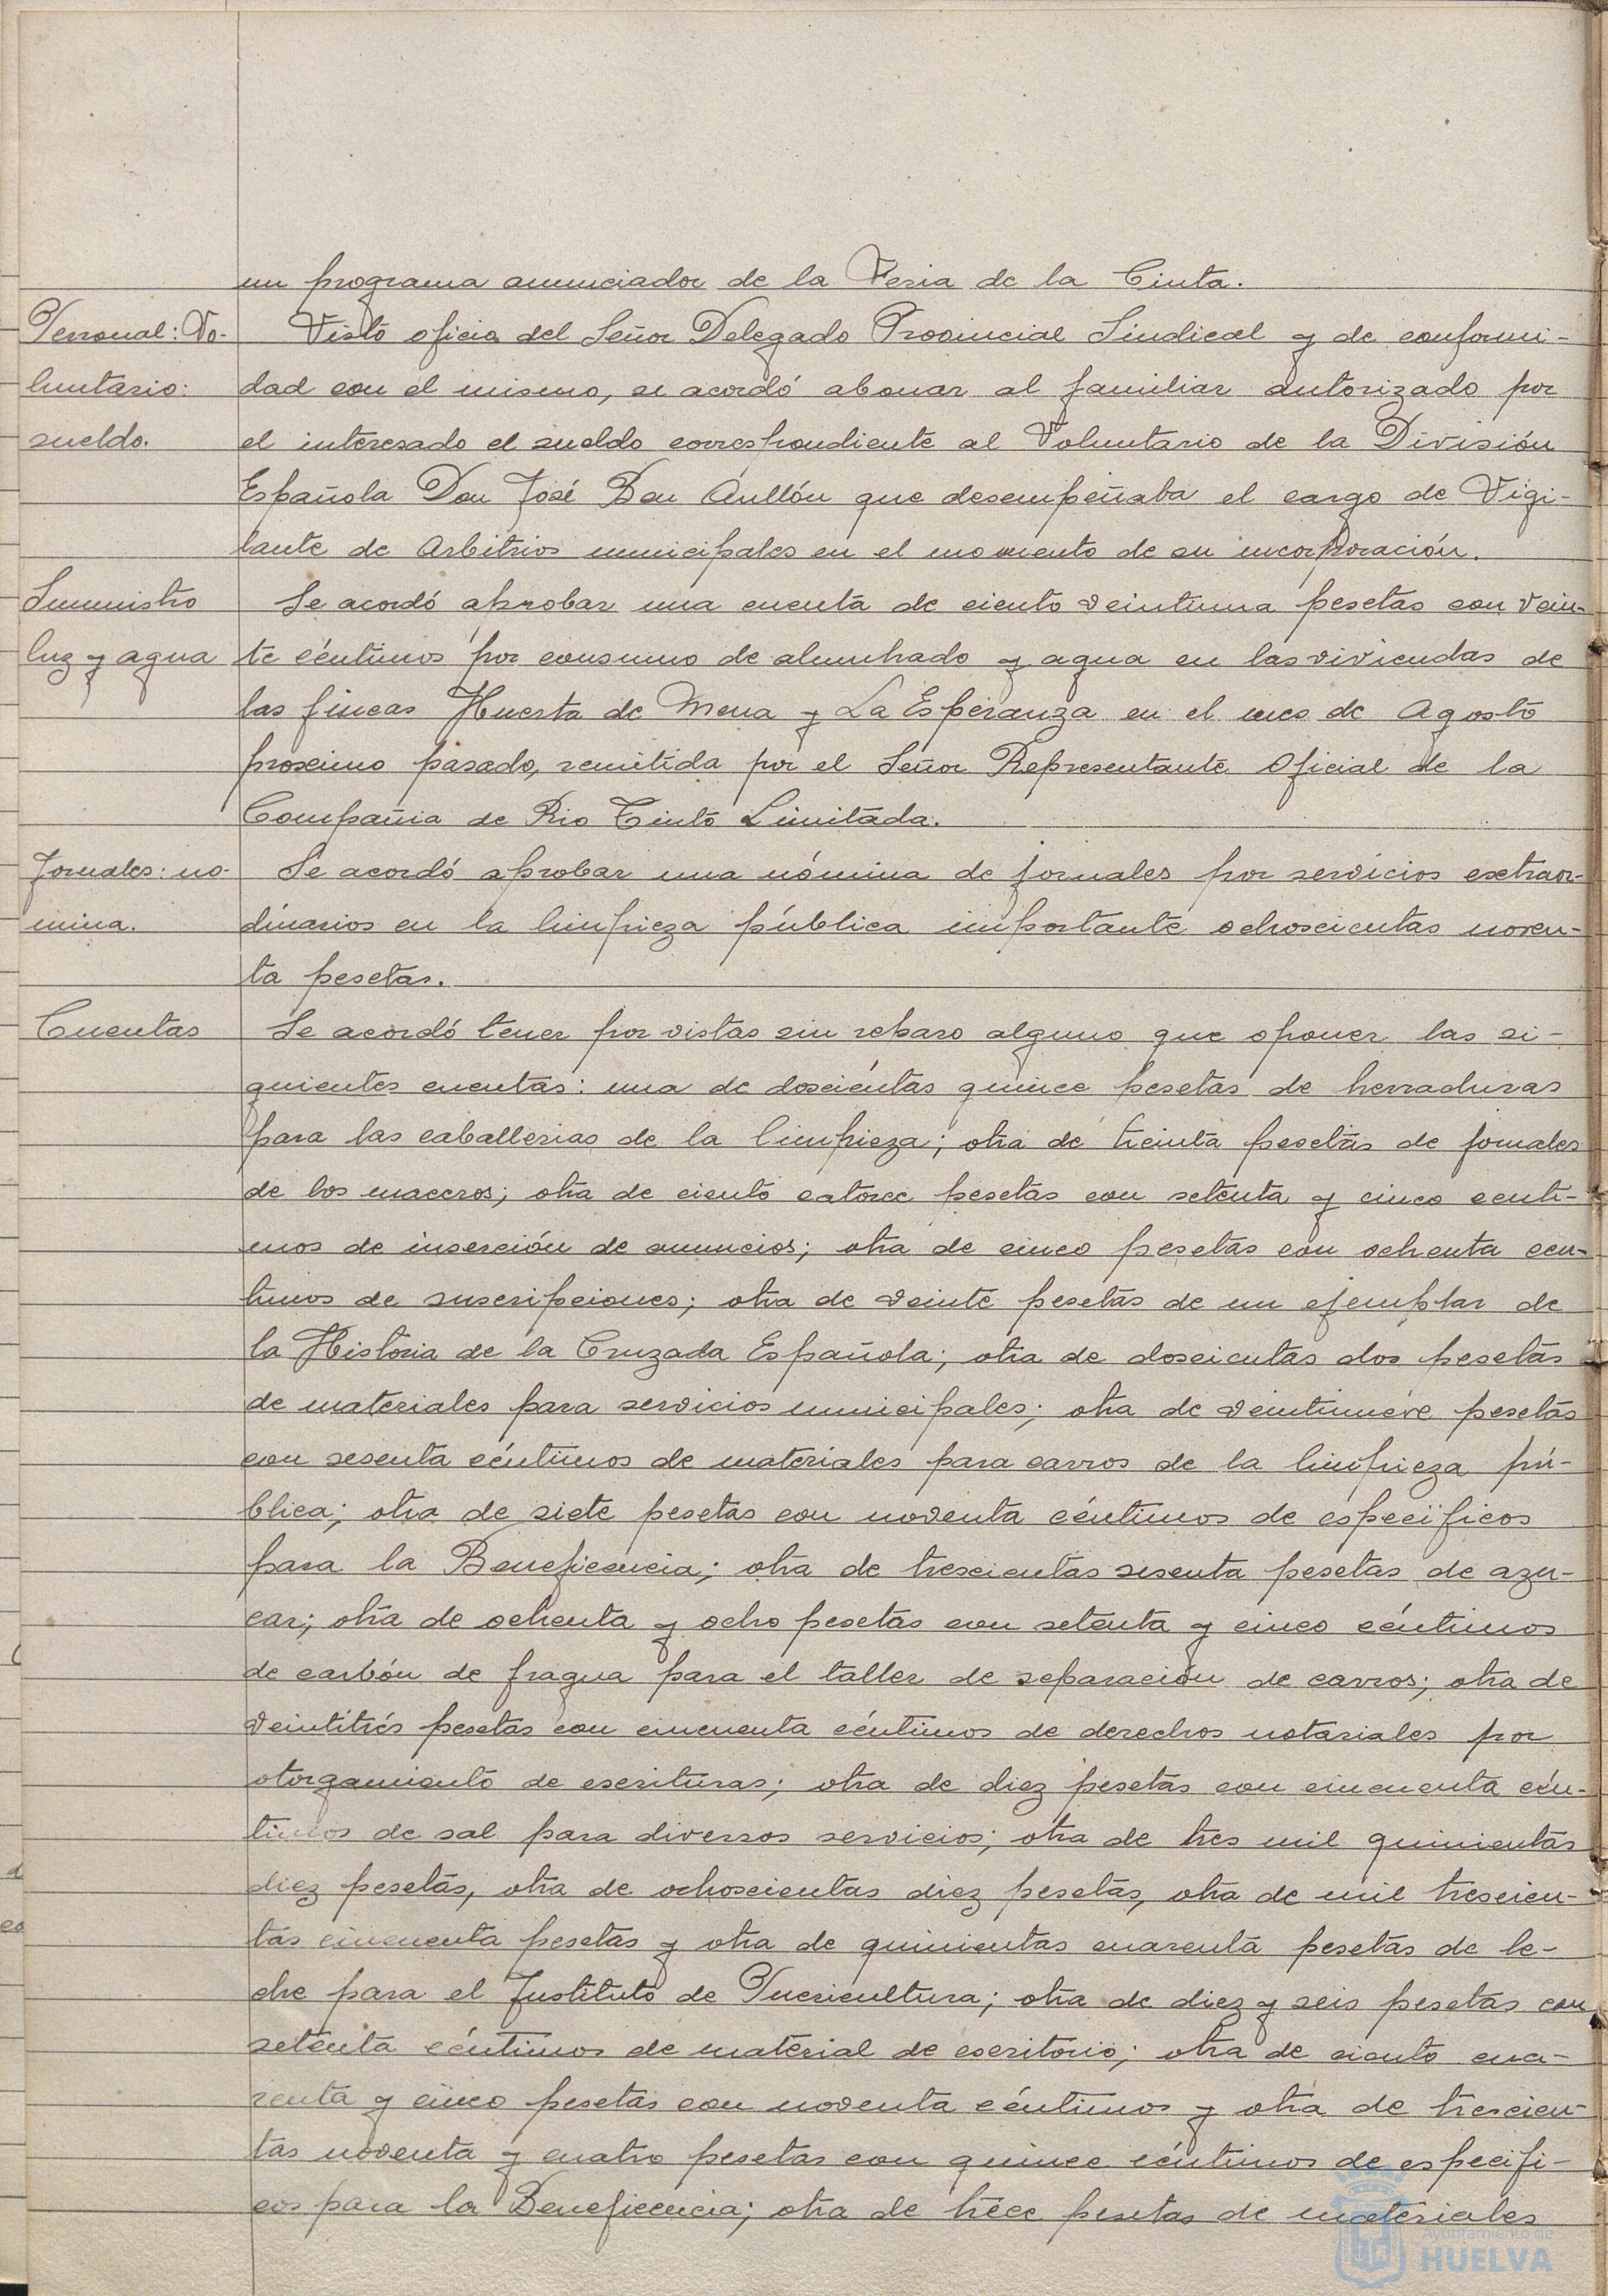 un programa anunciador de la Feria de la Cinta.
Personal: Vo-
luntario:
sueldo.
Visto oficio del Señor Delegado Provincial Sindical y de conformi-
dad con el mismo, se acordó abonar al familiar autorizado por
el interesado el sueldo correspondiente al Voluntario de la División
Española Don José Bou Aullón que desempeñaba el cargo de Vigi-
lante de Arbitrios municipales en el momento de su incorporación.
Suministro
luz y agua
Se acordó aprobar una cuenta de ciento veintiuna pesetas con vein-
te céntimos por consumo de alumbrado y agua en las viviendas de
las fincas Huerta de Mena y La Esperanza en el mes de Agosto
proximo pasado, remitida por el Señor Representante Oficial de la
Compañia de Rio Tinto Limitada.
Jornales: no-
mina.
Se acordó aprobar una nómina de jornales por servicios extraor-
dinarios en la limpieza pública importante ochoscientas noven-
ta pesetas.
Cuentas
Se acordó tener por vistas sin reparo alguno que oponer las si-
guientes cuentas: una de doscientas quince pesetas de herraduras
para las caballerias de la limpieza; otra de treinta pesetas de jornales
de los maceros; otra de ciento catorce pesetas con setenta y cinco centi-
mos de inserción de anuncios; otra de cinco pesetas con ochenta cen-
timos de suscripciones; otra de veinte pesetas de un ejemplar de
la Historia de la Cruzada Española; otra de doscientas dos pesetas
de materiales para servicios municipales; otra de veintinueve pesetas
con sesenta céntimos de materiales para carros de la limpieza pú-
blica; otra de siete pesetas con noventa céntimos de especificos
para la Beneficencia; otra de trescientas sesenta pesetas de azu-
car; otra de ochenta y ocho pesetas con setenta y cinco céntimos
de carbón de fragua para el taller de reparación de carros; otra de
veintitrés pesetas con cincuenta céntimos de derechos notariales por
otorgamiento de escrituras; otra de diez pesetas con cincuenta cén-
timos de sal para diversos servicios; otra de tres mil quinientas
diez pesetas, otra de ochoscientas diez pesetas, otra de mil trescien-
tas cincuenta pesetas y otra de quinientas cuarenta pesetas de le-
che para el Instituto de Puericultura; otra de diez y seis pesetas con
setenta céntimos de material de escritorio; otra de ciento cua-
renta y cinco pesetas con noventa céntimos y otra de trescien-
tas noventa y cuatro pesetas con quince céntimos de especifi-
cos para la Beneficencia; otra de trece pesetas de materiales
Ayuntamiento de
HUELVA